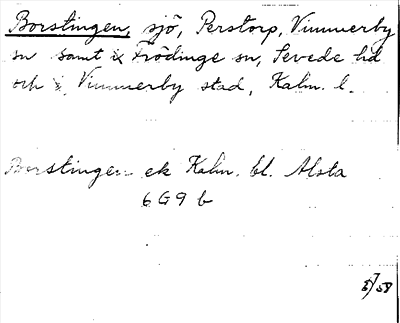 Borstingen, sjö, Perstorp, Vimmerby
sn samt i Frödinge sn, Sevede hd
och i Vimmerby stad, Kalm. l.
Borstingen ek Kalm. bl. Alsta
6 G 9 b
5/7 58